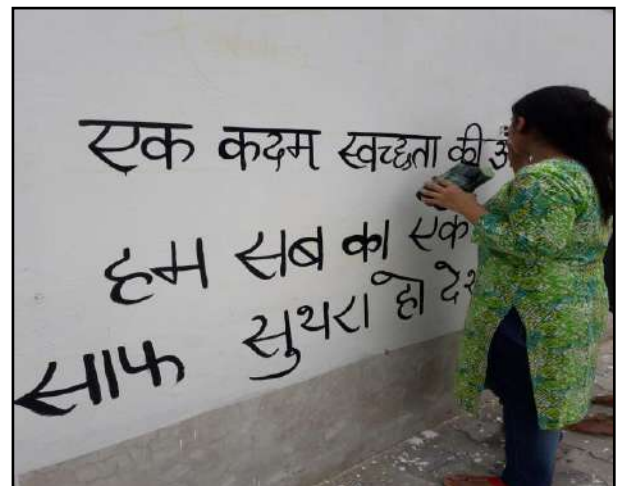 एक कदम स्वच्छता की
हम सब का एक
साफ सुथरा हो